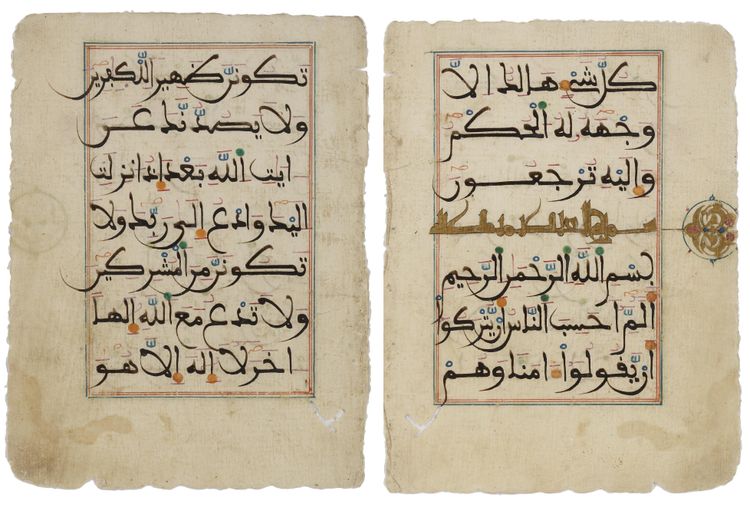 تكونن ظهيرا للكفرين
ولا يصدنك عن
ايت الله بعد اذ انزلت
اليك وادع الى ربك ولا
تكونن من المشركين
ولا تدع مع الله الها
اخر لا اله الا هو
كل شيء هالك الا
وجهه له الحكم
واليه ترجعون
سورة العنكبوت مكية
بسم الله الرحمن الرحيم
الم احسب الناس ان يتركوا
ان يقولوا امنا وهم